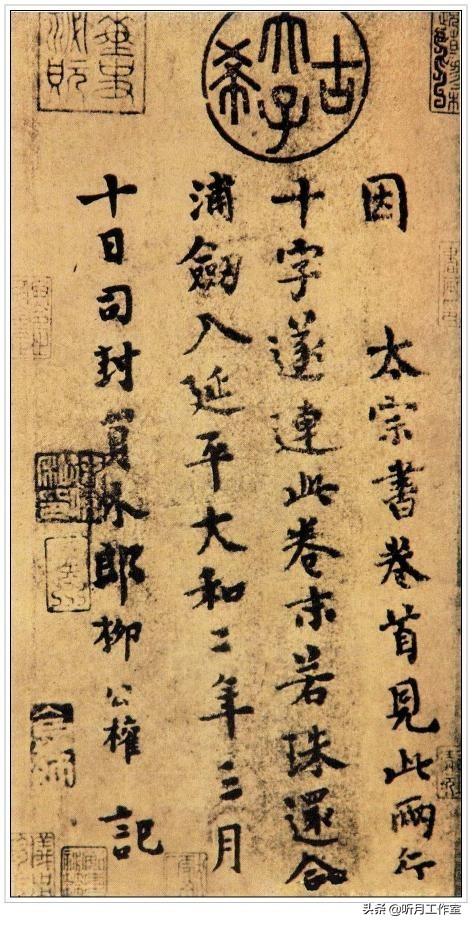 古希天子
因 太宗書卷首見此兩行
十字遂連此卷末若珠還合
浦劔入延平大和二年三月
十日司封員外郎柳公權記
头条 @听月工作室